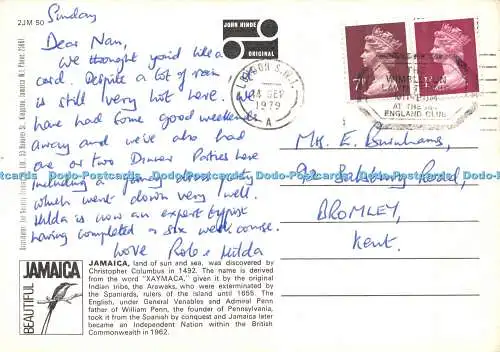 Sunday
2JM 50
Dear Nan,
We thought you'd like a
card. Despite a lot of rain
is still very hot here. We
have had some good weekends
away and we've also had
one or two Dinner Parties here
including a fancy dress party
which went down very well.
Hilda is now an expert typist
having completed a six week course.
love Rob & Hilda
JOHN HINDE
ORIGINAL
LONDON S.W.
SEP
1979
A
THE
WIMBLEDON
LAWN TENNIS
MUSEUM
AT THE ALL
ENGLAND CLUB
Mrs. E. Burnhams,
Salisbury Road,
BROMLEY,
Kent.
Dodo-Postcards Dodo-Postcards Dodo-Postcards Dodo-Postcards Dodo-Postcards
BEAUTIFUL
JAMAICA
JAMAICA, land of sun and sea, was discovered by
Christopher Columbus in 1492. The name is derived
from the word "XAYMACA," given it by the original
Indian tribes, the Arawaks, who were exterminated by
the Spaniards, rulers of the island until 1655. The
English, under General Venables and Admiral Penn
father of William Penn, the founder of Pennsylvania,
took it from the Spanish by conquest and Jamaica later
became an Independent Nation within the British
Commonwealth in 1962.